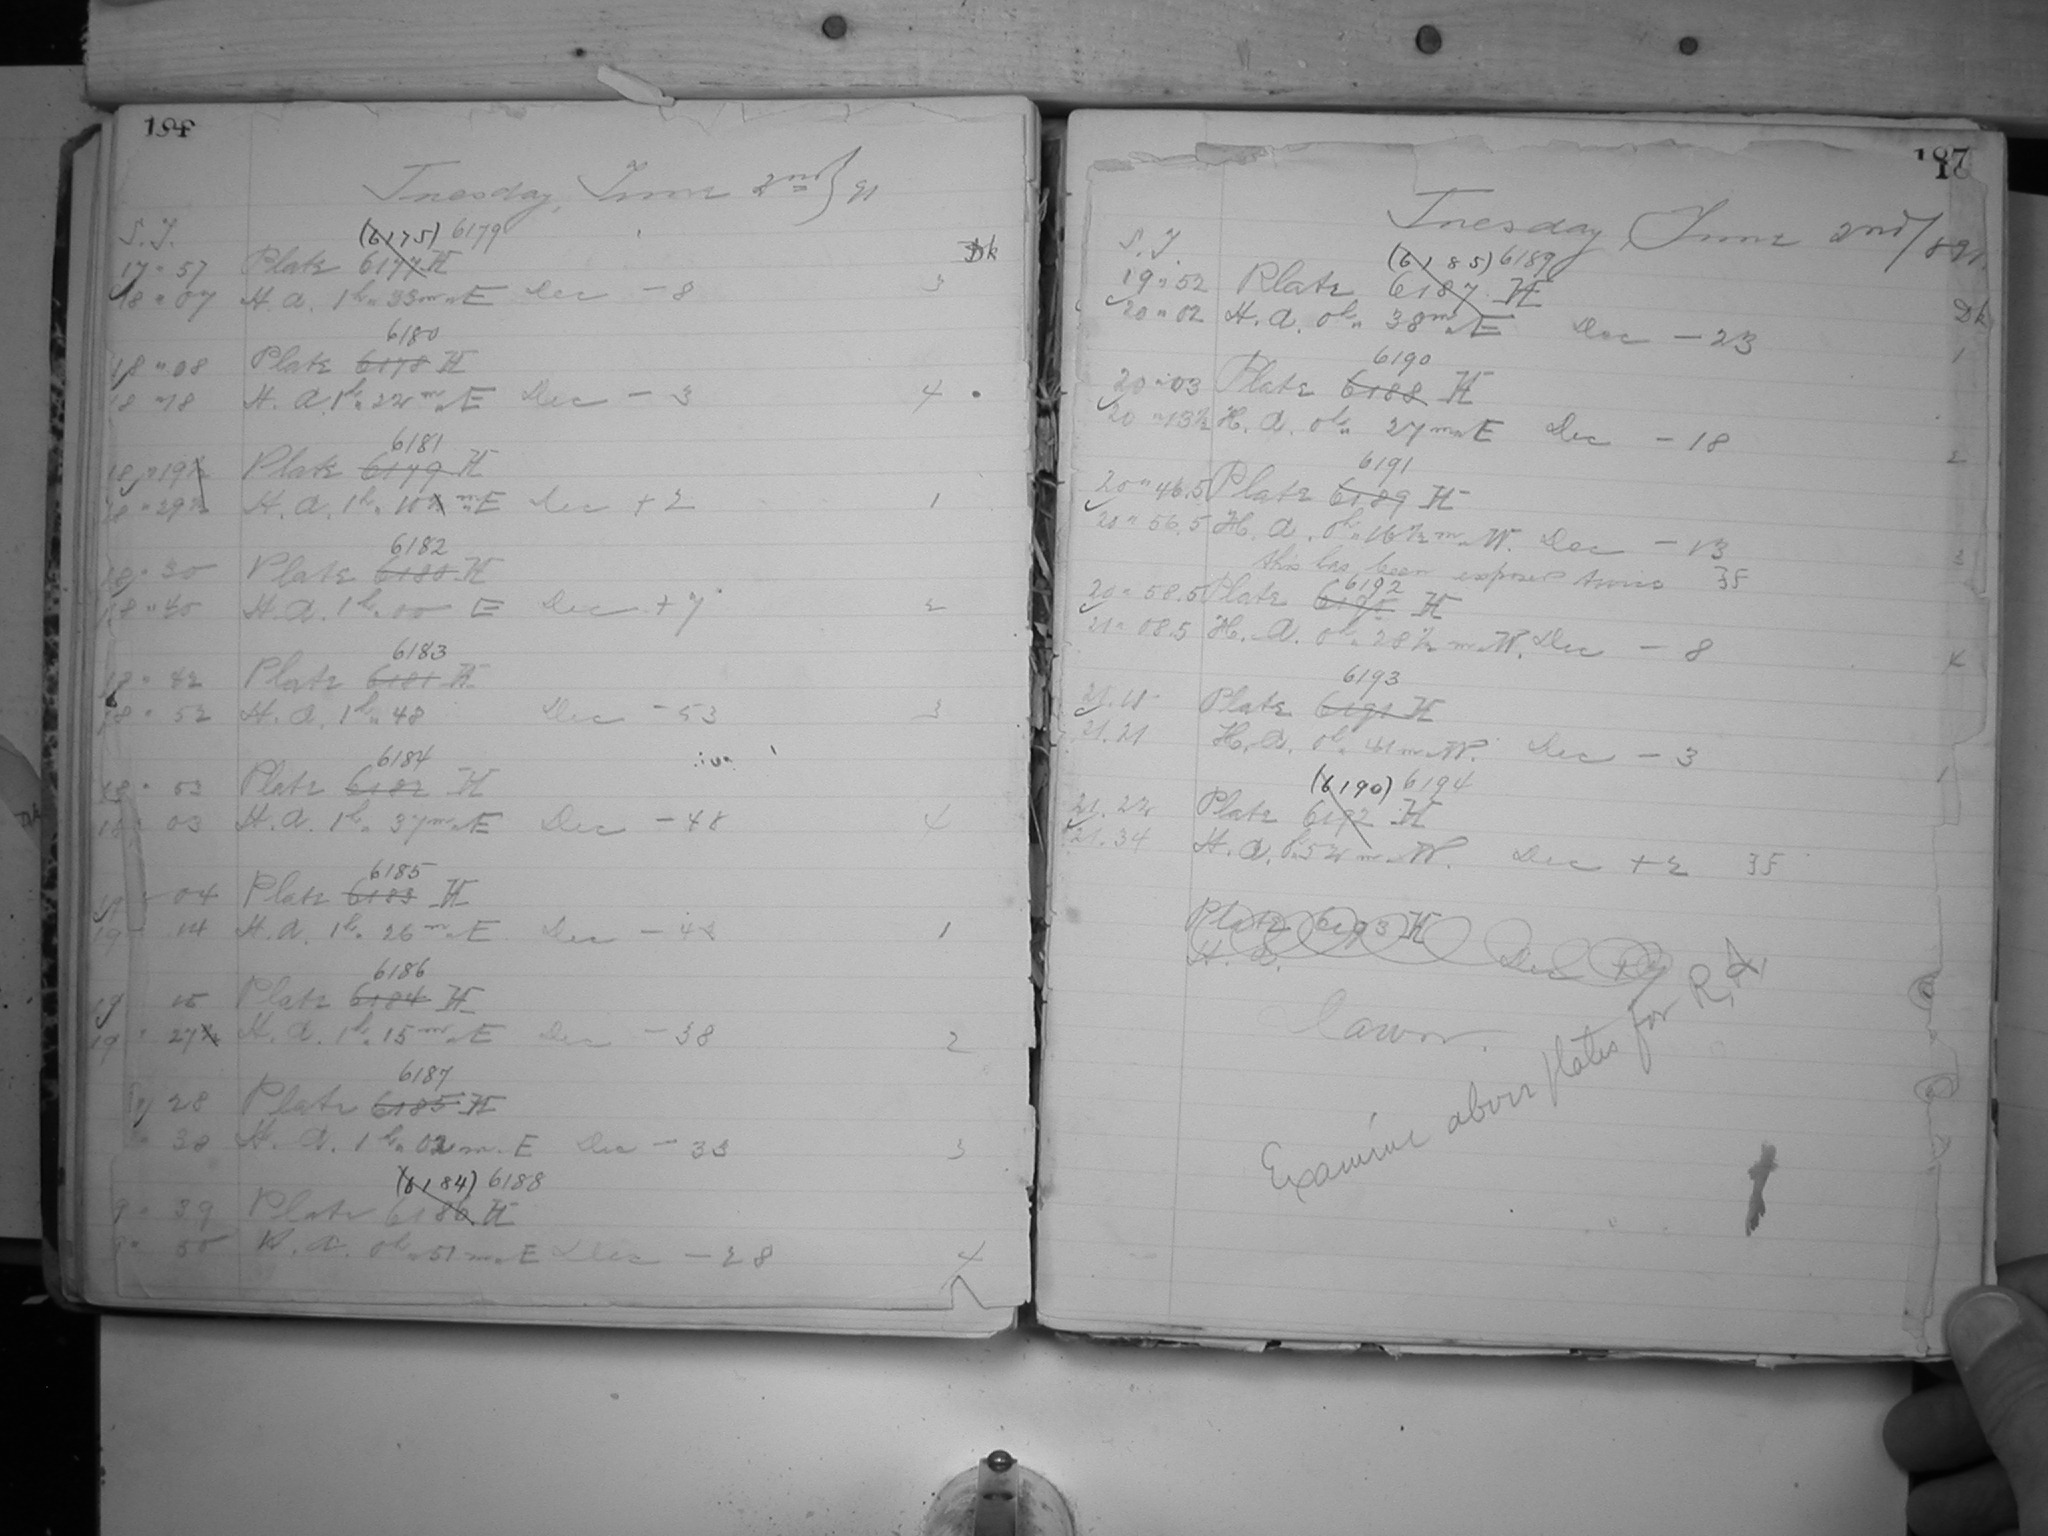 Tuesday, June 2nd } 91
S.T.
(6175) 6179
Dk
17 " 57 Plate 6177 H
18 " 07 H.A. 1h " 33m " E Dec - 8 3
6180
18 " 08 Plate 6178 H
18 " 18 H.A. 1h " 22m " E Dec - 3 4
6181
18 " 19½ Plate 6179 H
18 " 29½ H.A. 1h " 10½ m " E Dec + 2 1
6182
18 " 30 Plate 6180 H
18 " 40 H.A. 1h " 00 E Dec + 7 2
6183
18 " 42 Plate 6181 H
18 " 52 H.A. 1h " 48 Dec - 53 3
6184
18 " 53 Plate 6182 H
03 H.A. 1h " 37m " E Dec - 48 4
6185
04 Plate 6183 H
19 " 14 H.A. 1h " 26m " E Dec - 43 1
6186
19 15 Plate 6184 H
19 " 27½ H.A. 1h " 15m " E Dec - 38 2
6187
28 Plate 6185 H
38 H.A. 1h " 02m " E Dec - 33 3
(6184) 6188
9 " 39 Plate 6186 H
9 " 50 H.A. 0h " 51m " E Dec - 28 4
187
Tuesday June 2nd / 891.
S.T.
(6185) 6189
19 " 52 Plate 6187 H
Dk
20 " 02 H.A. 0h " 38m " E Dec - 23 1
6190
20 " 03 Plate 6188 H
20 " 13½ H.A. 0h " 27m " E Dec - 18 2
6191
20 " 46.5 Plate 6189 H
20 " 56.5 H.A. 0h " 16½ m " W. Dec - 13 3
this has been exposed twice 3F
6192
20 " 58.5 Plate H
21 " 08.5 H.A. 0h " 28½ m " W. Dec - 8 4
6193
21.11 Plate 6191 H
21.21 H.A. 0h " 41m " W. Dec - 3 1
(6190) 6194
21.24 Plate 6192 H
21.34 H.A. 0h " 52 m " W. Dec + 2 3F
Plate 6193 H
H.A. Dec + 7
Dawn.
Examine above plates for R.A.